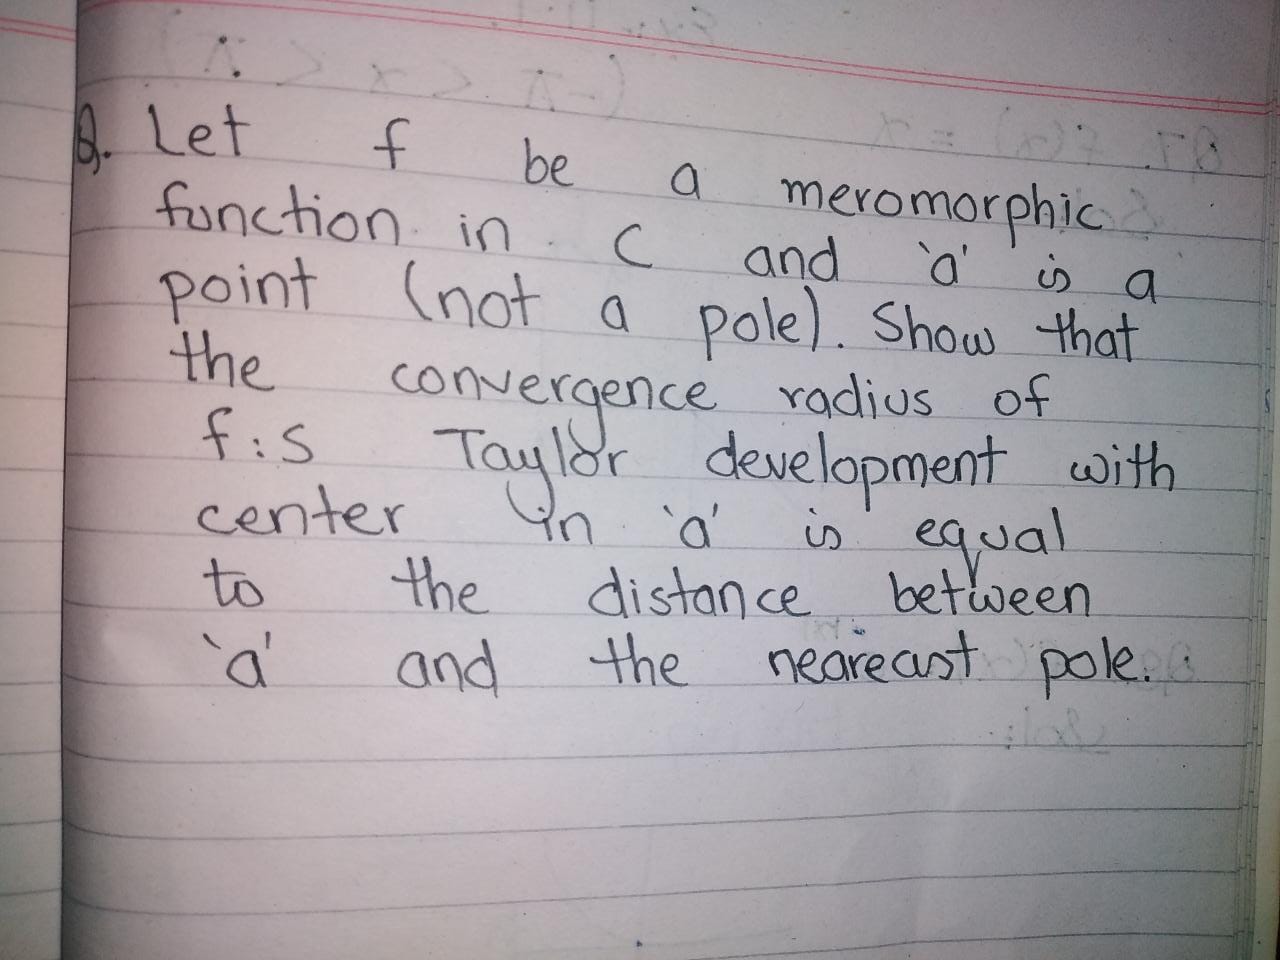 Q. Let f be a meromorphic
function in C and 'a' is a
point (not a pole). Show that
the convergence radius of
f:s Taylor development with
center in 'a' is equal
to the distance between
'a' and the neareast pole.